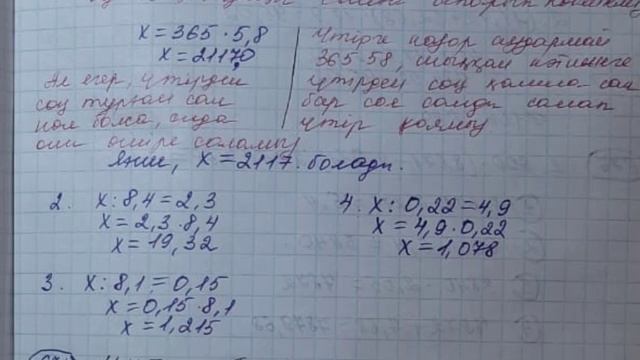 x = 365 · 5,8
x = 2117,0
Ал егер, үтірден
соң тұрған сан
нол болса, онда
оны өшіре саламыз
Үтірге назар аудармай
365·58, шыққан көбейтіндіге
үтірден соң қанша сан
бар соя санды санап
үтір қоямыз
яғни, x = 2117 болады.
2. x : 8,4 = 2,3
x = 2,3 · 8,4
x = 19,32
3. x : 8,1 = 0,15
x = 0,15 · 8,1
x = 1,215
4. x : 0,22 = 4,9
x = 4,9 · 0,22
x = 1,078